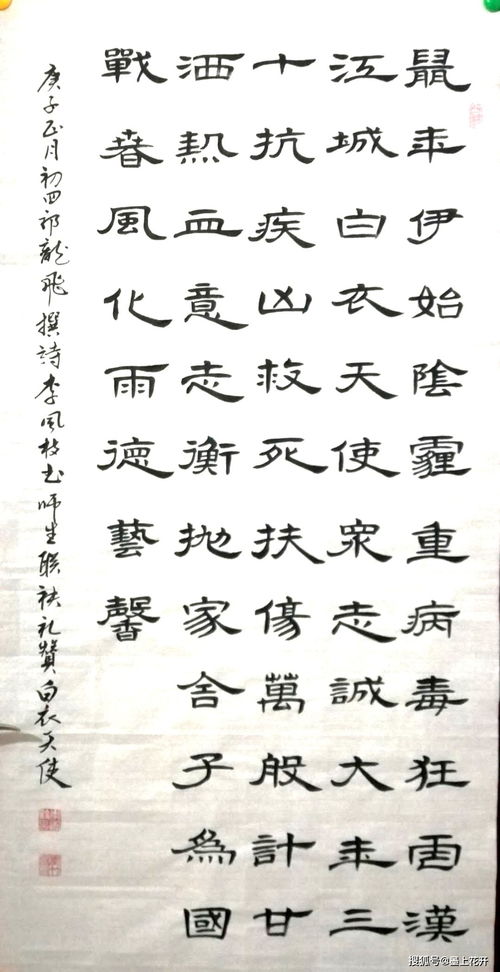 鼠年伊始陰霾重病毒狂漢
江城白衣天使眾志誠大年三
十抗疾凶救死扶傷萬般計甘
洒熱血意志衡拋家舍子為國
戰春風化雨德藝馨
庚子正月初四祁龍飛撰詩李風枝书师生联袂礼贊白衣天使
搜狐号@墨上花开